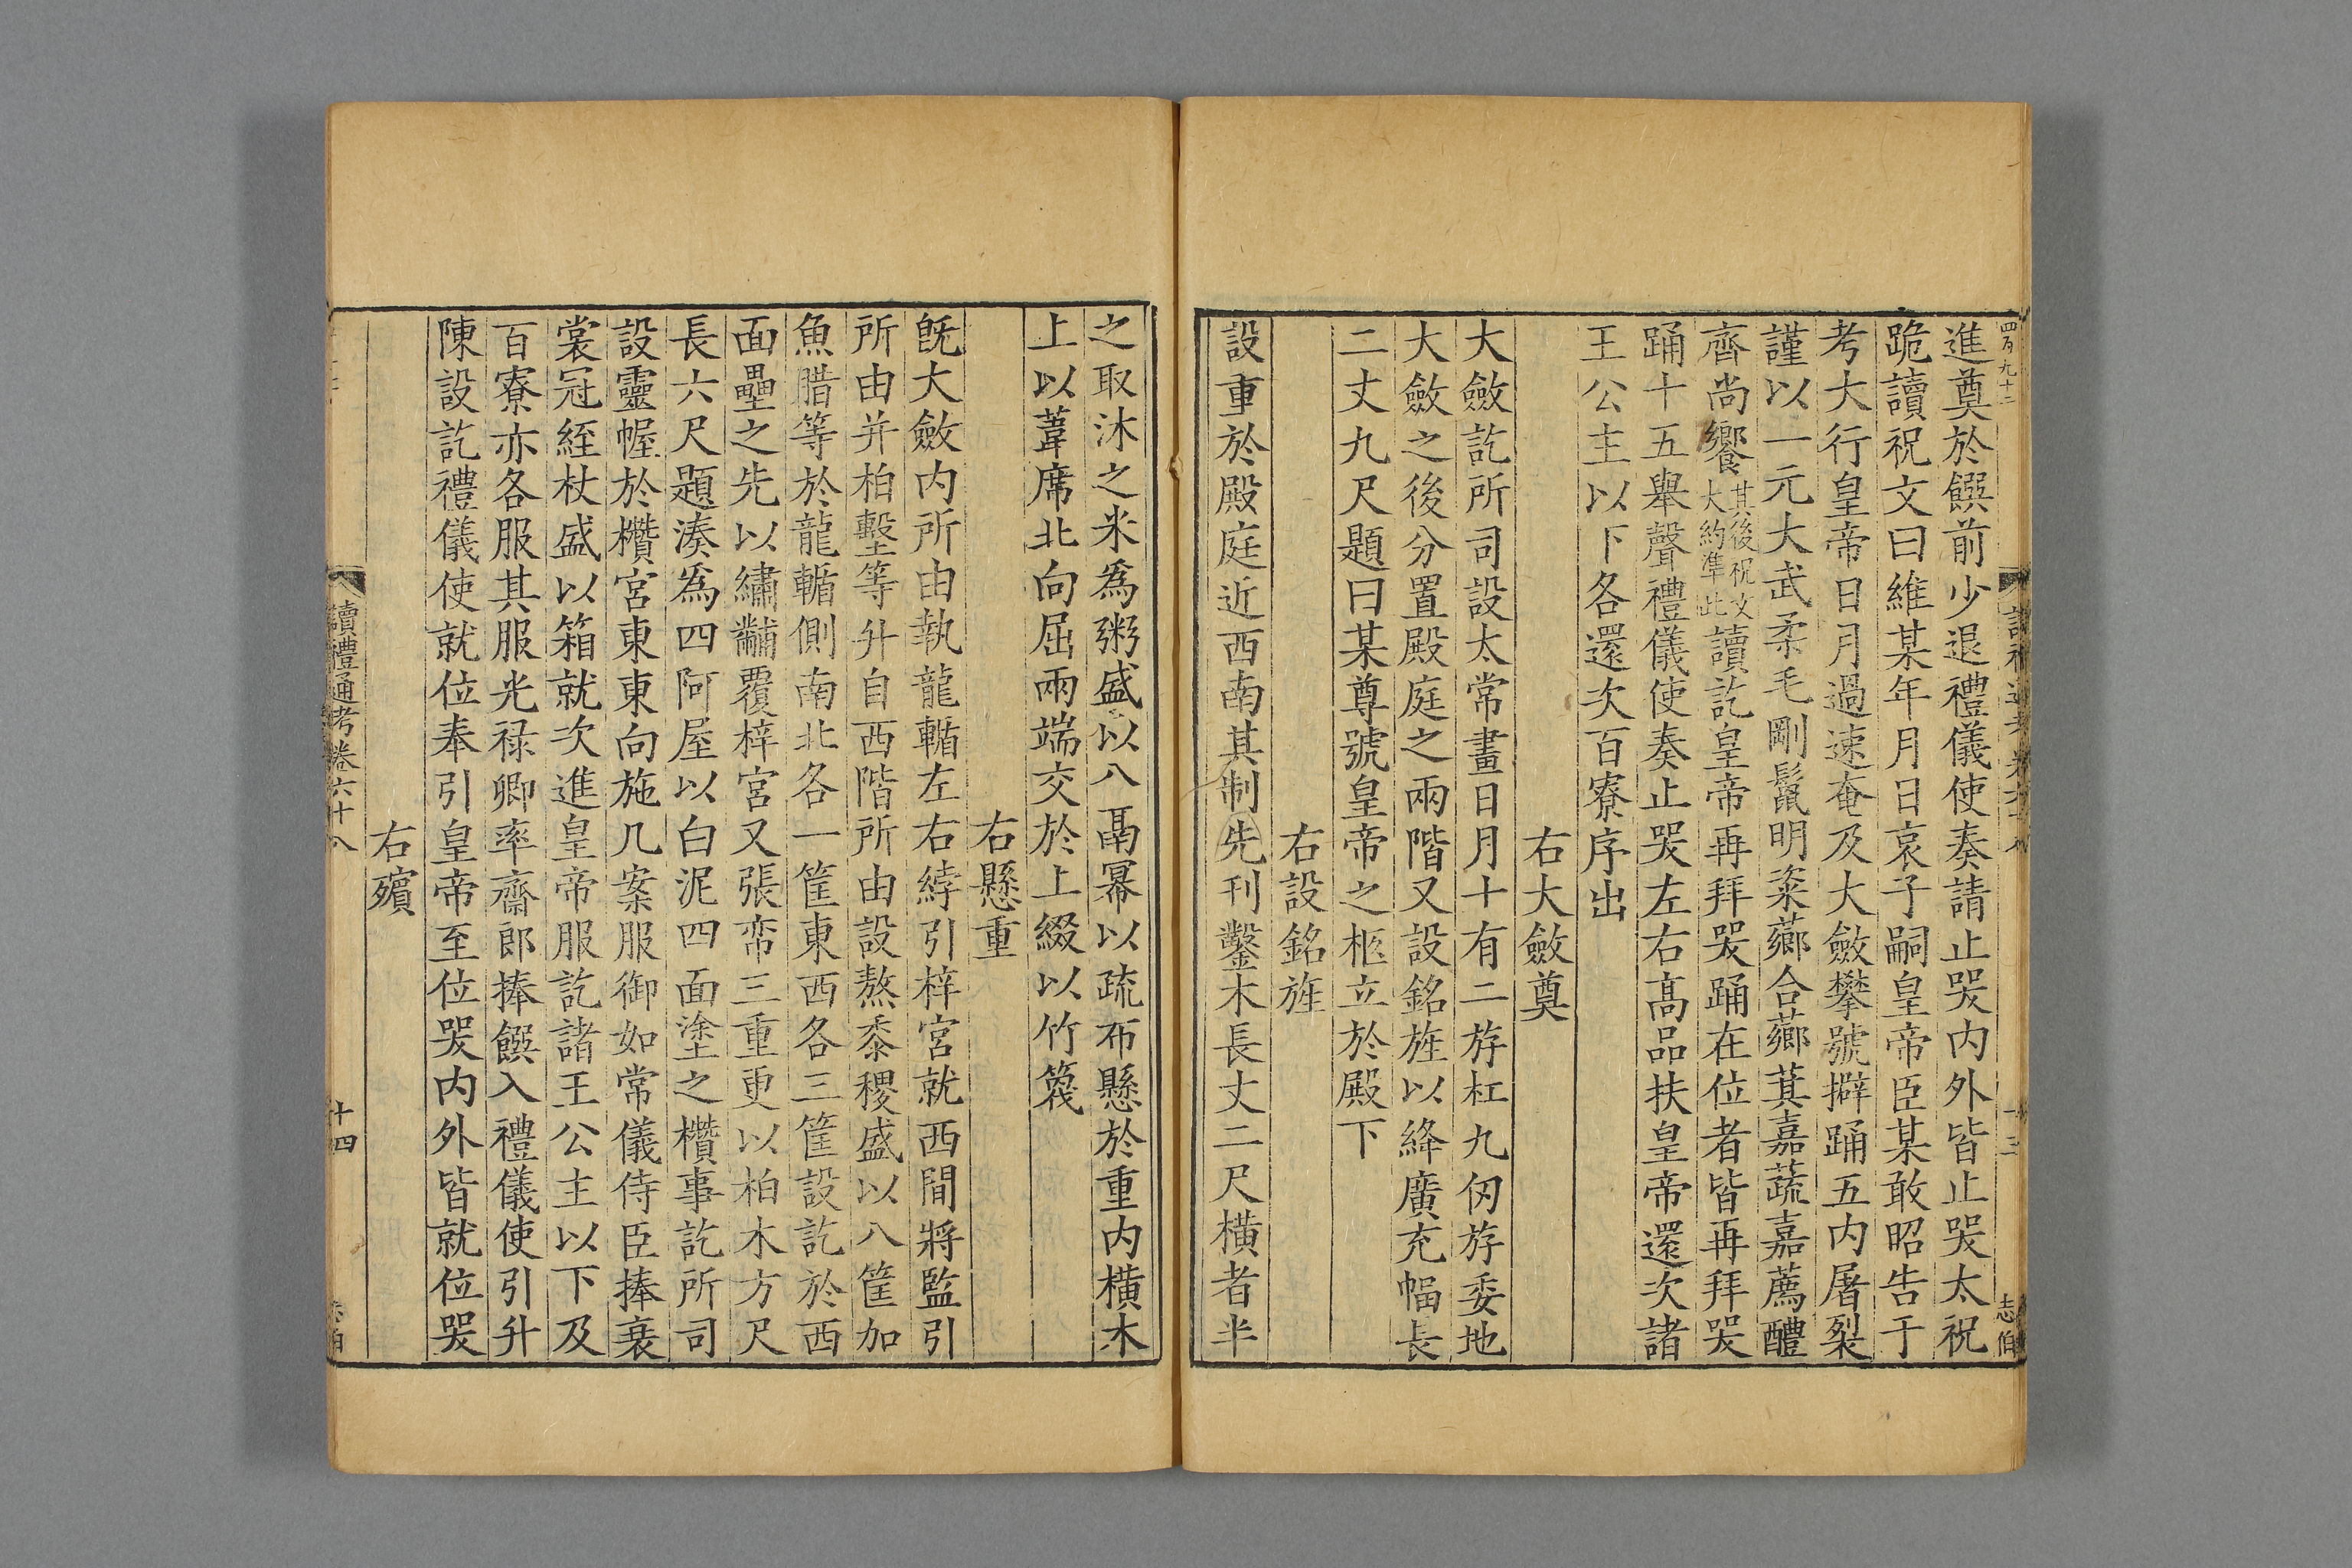 四百九十二
進奠於饌前少退禮儀使奏請止哭内外皆止哭太祝
跪讀祝文曰維某年月日哀子嗣皇帝臣某敢昭告于
考大行皇帝日月過速奄及大斂攀號擗踊五内屠裂
謹以一元大武柔毛剛鬛明粢薌合薌萁嘉蔬嘉薦醴
齊尚饗其後祝文大約準此讀訖皇帝再拜哭踊在位者皆再拜哭
踊十五舉聲禮儀使奏止哭左右高品扶皇帝還次諸
王公主以下各還次百寮序出
右大斂奠
大斂訖所司設太常畫日月十有二斿杠九仞斿委地
大斂之後分置殿庭之兩階又設銘旌以絳廣充幅長
二丈九尺題曰某尊號皇帝之柩立於殿下
右設銘旌
設重於殿庭近西南其制先刊鑿木長丈二尺橫者半
十三
志伯
之取沐之米爲粥盛以八鬲冪以疏布懸於重内橫木
上以葦席北向屈兩端交於上綴以竹篾
右懸重
旣大斂内所由執龍輴左右綍引梓宮就西間將監引
所由并柏墼等升自西階所由設熬黍稷盛以八筐加
魚腊等於龍輴側南北各一筐東西各三筐設訖於西
面壘之先以繡黼覆梓宮又張帟三重更以柏木方尺
長六尺題湊爲四阿屋以白泥四面塗之欑事訖所司
設靈幄於欑宮東東向施几案服御如常儀侍臣捧衰
裳冠絰杖盛以箱就次進皇帝服訖諸王公主以下及
百寮亦各服其服光祿卿率齋郎捧饌入禮儀使引升
陳設訖禮儀使就位奉引皇帝至位哭内外皆就位哭
右殯
讀禮通考卷六十八
十四